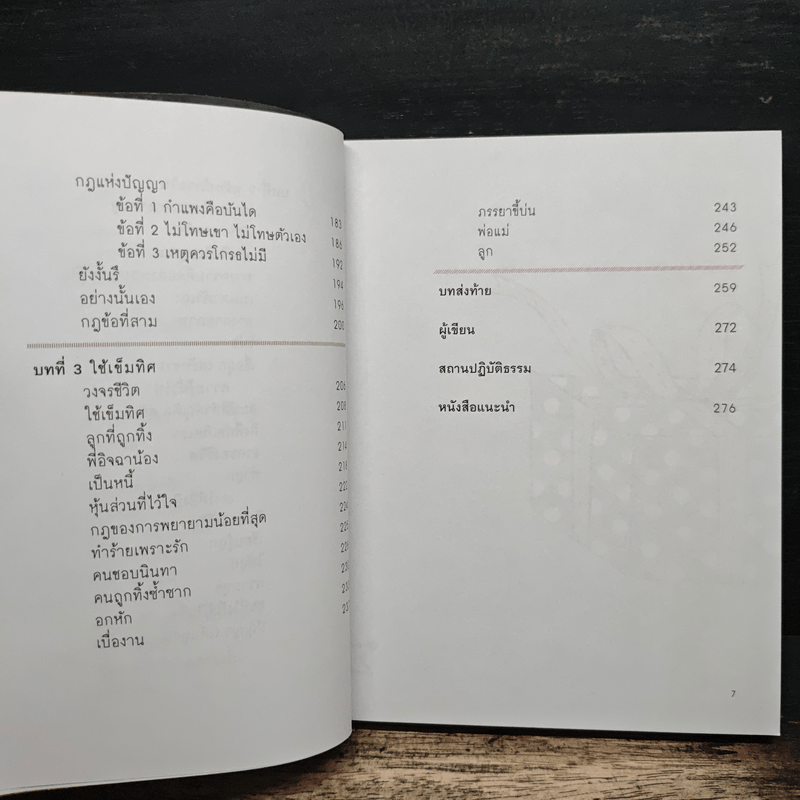 กฎแห่งปัญญา
ข้อที่ 1 กำแพงคือบันได 183
ข้อที่ 2 ไม่โทษเขา ไม่โทษตัวเอง 186
ข้อที่ 3 เหตุควรโกรธไม่มี 192
ยังงั้นรึ 194
อย่างนั้นเอง 196
กฎข้อที่สาม 200
บทที่ 3 ใช้เข็มทิศ
วงจรชีวิต 206
ใช้เข็มทิศ 208
ลูกที่ถูกทิ้ง 211
พี่อิจฉาน้อง 214
เป็นหนี้ 216
หุ้นส่วนที่ไว้ใจ 222
กฎของการพยายามน้อยที่สุด 224
ทำร้ายเพราะรัก 225
คนชอบนินทา
คนถูกทิ้งซ้ำซาก 230
อกหัก
เบื่องาน 237
ภรรยาขี้บ่น 243
พ่อแม่ 246
ลูก 252
บทส่งท้าย 259
ผู้เขียน 272
สถานปฏิบัติธรรม 274
หนังสือแนะนำ 276
7